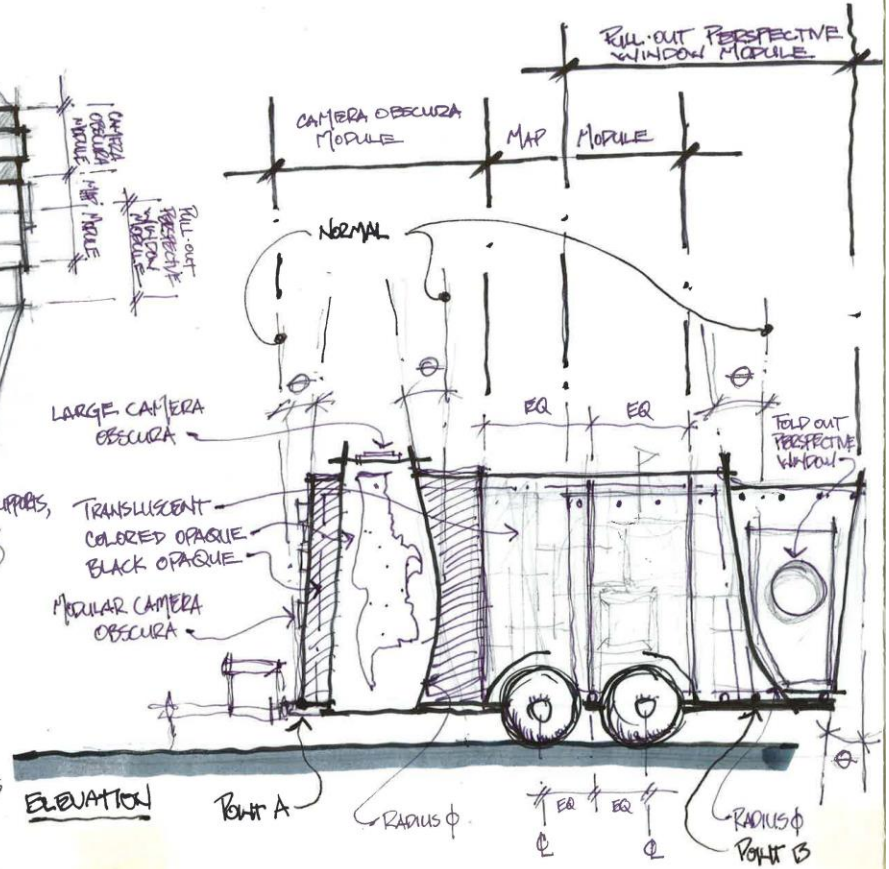 PULL-OUT PERSPECTIVE
WINDOW MODULE
CAMERA OBSCURA
MODULE
MAP MODULE
CAMERA
OBSCURA
MODULE
MAP MODULE
PULL-OUT
PERSPECTIVE
WINDOW
MODULE
NORMAL
θ
θ
θ
LARGE CAMERA
OBSCURA
EQ
EQ
FOLD OUT
PERSPECTIVE
WINDOW
TRANSLUSCENT
COLORED OPAQUE
BLACK OPAQUE
MODULAR CAMERA
OBSCURA
θ
ELEVATION
POINT A
RADIUS ϕ
EQ
EQ
RADIUS ϕ
POINT B